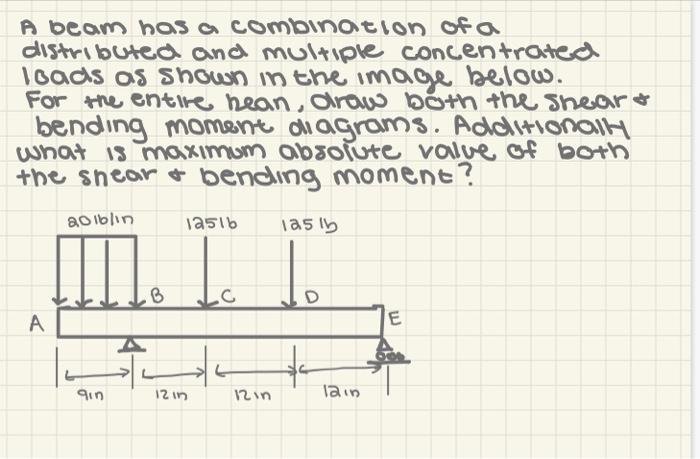 A beam has a combination of a
distributed and multiple concentrated
loads as shown in the image below.
For the entire bean, draw both the shear &
bending moment diagrams. Additionally
what is maximum absolute value of both
the shear & bending moment?
20 lb/in 125 lb 125 lb
B C D
A E
9in 12 in 12 in 12 in